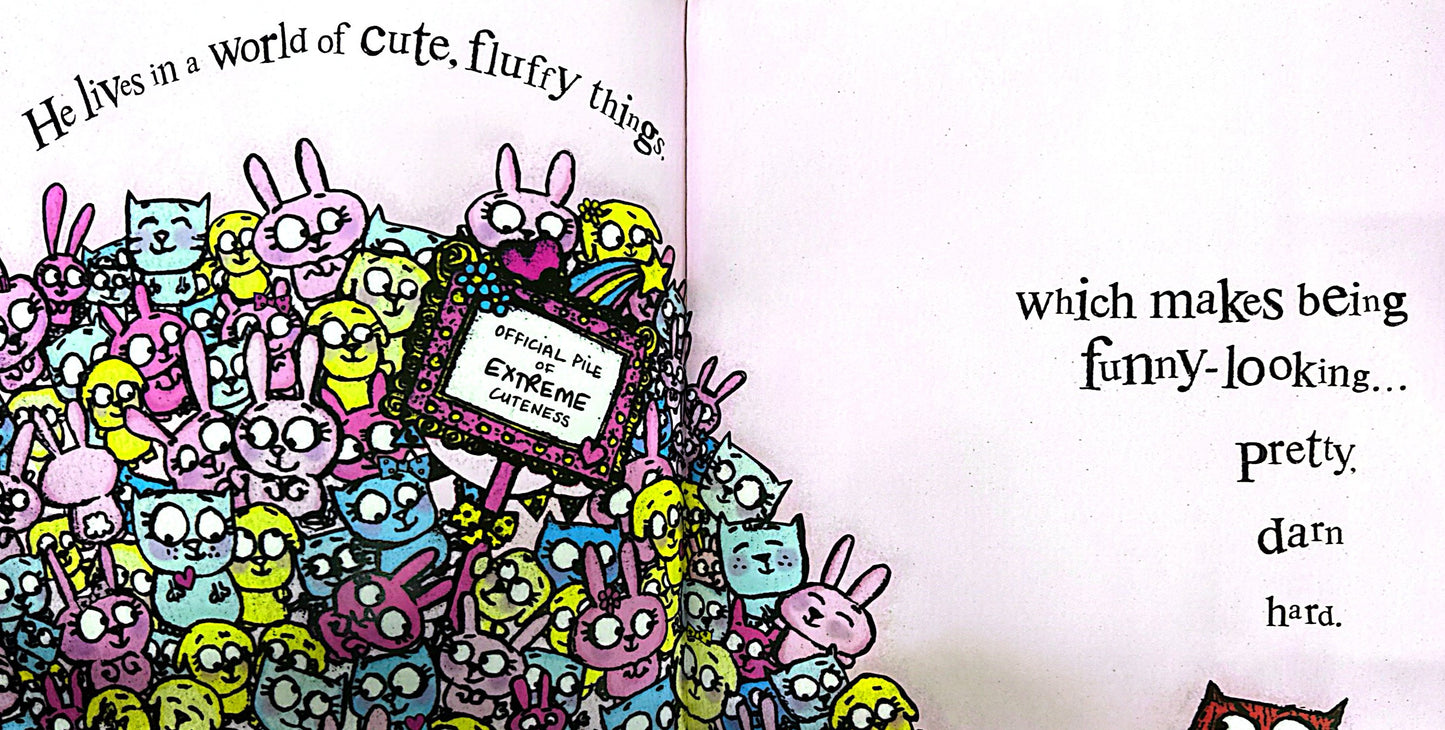 He lives in a world of cute, fluffy things,
OFFICIAL PILE
OF
EXTREME
CUTENESS
which makes being
funny-looking...
pretty,
darn
hard.